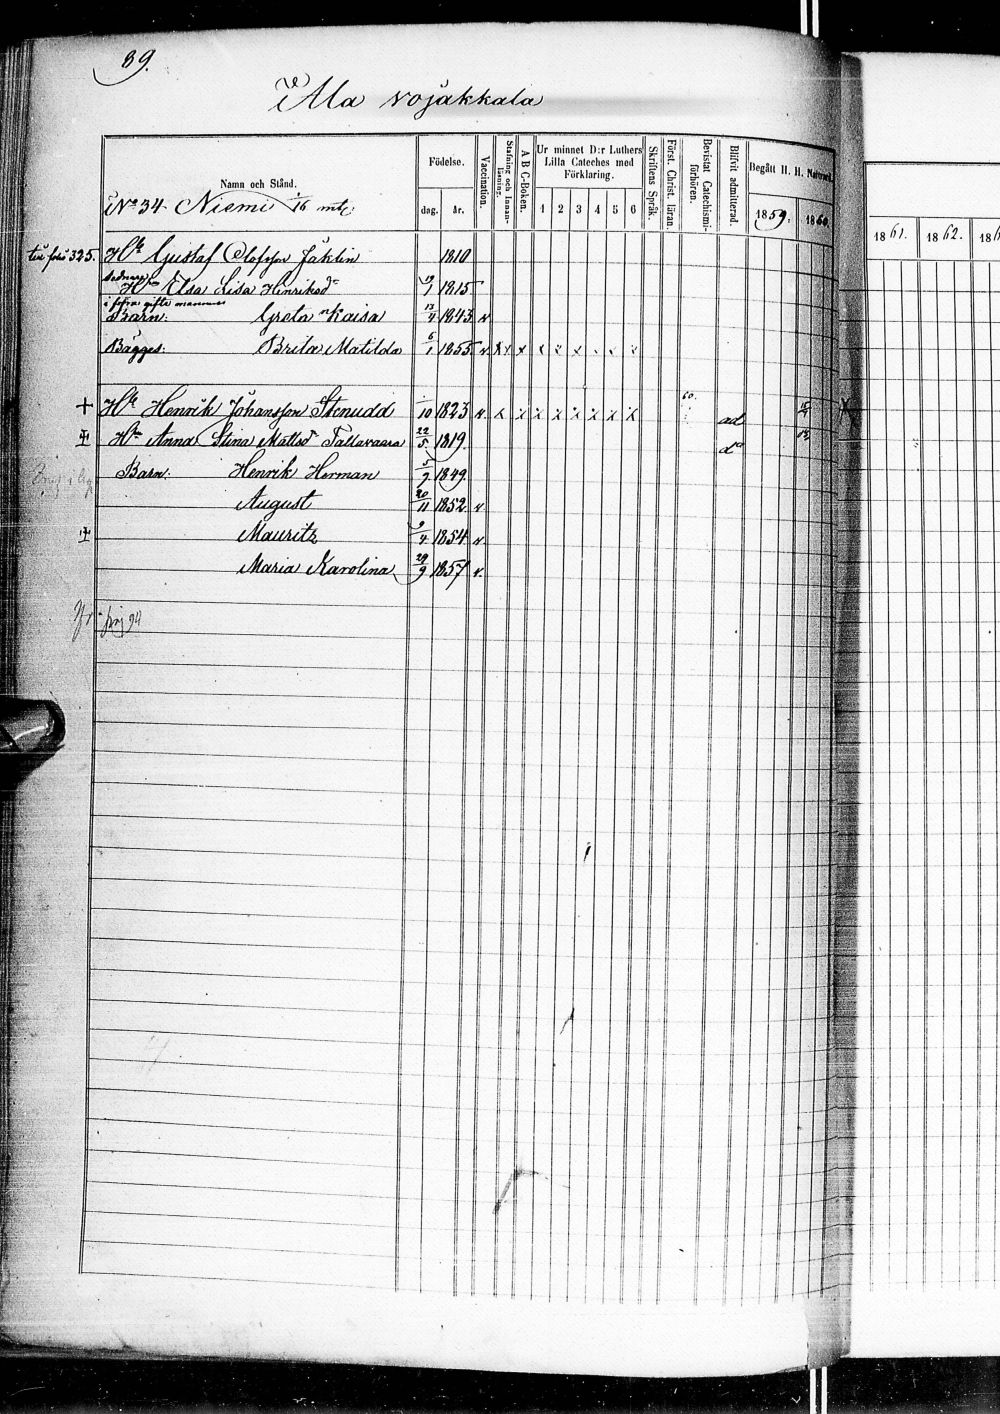 89.
Ala vojakkala
Namn och Stånd.
Födelse.
dag.
år.
Vaccination.
Stafning och innanläsning.
A B C-Boken.
Ur minnet D:r Luthers Lilla Cateches med Förklaring.
1 2 3 4 5 6
Skriftens Språk.
Först. Christ. läran.
Bevistat Catechismiförhören.
Blifvit admitterad.
Begått H. H. Nattvard.
1859. 1860.
1861. 1862. 186
No 34 Niemi 1/16 mtl
till folio 325. Hk Gustaf Olofsson Jäklin 1810
Hn Elsa Lisa Henriksdr 19/1 1815
i förra giftet
Barn: Greta Kaisa 13/4 1843 v
Bägges: Brita Matilda 6/1 1855 v x x x x x x
+ Hk Henrik Johansson Stenudd 10 1823 v x x x x x x x x 60. ad
+ Hn Anna Stina Mattsdr Tallavaara 22/5 1819. do
Barn: Henrik Herman 5/9 1849.
August 20/11 1852 v
+ Mauritz 9/4 1854 v
Maria Karolina 29/9 1857 v.